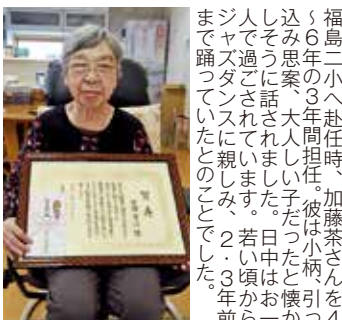 福島二小へ赴任時、加藤茶さんを４
～６年の３年間担任。彼は小柄、引っ
込み思案、大人しい子だったと懐か
しそうに話されました。日中はお一
人で過ごされています。若い頃から
ジャズダンスに親しみ、２・３年前
まで踊っていたとのことでした。
賀寿